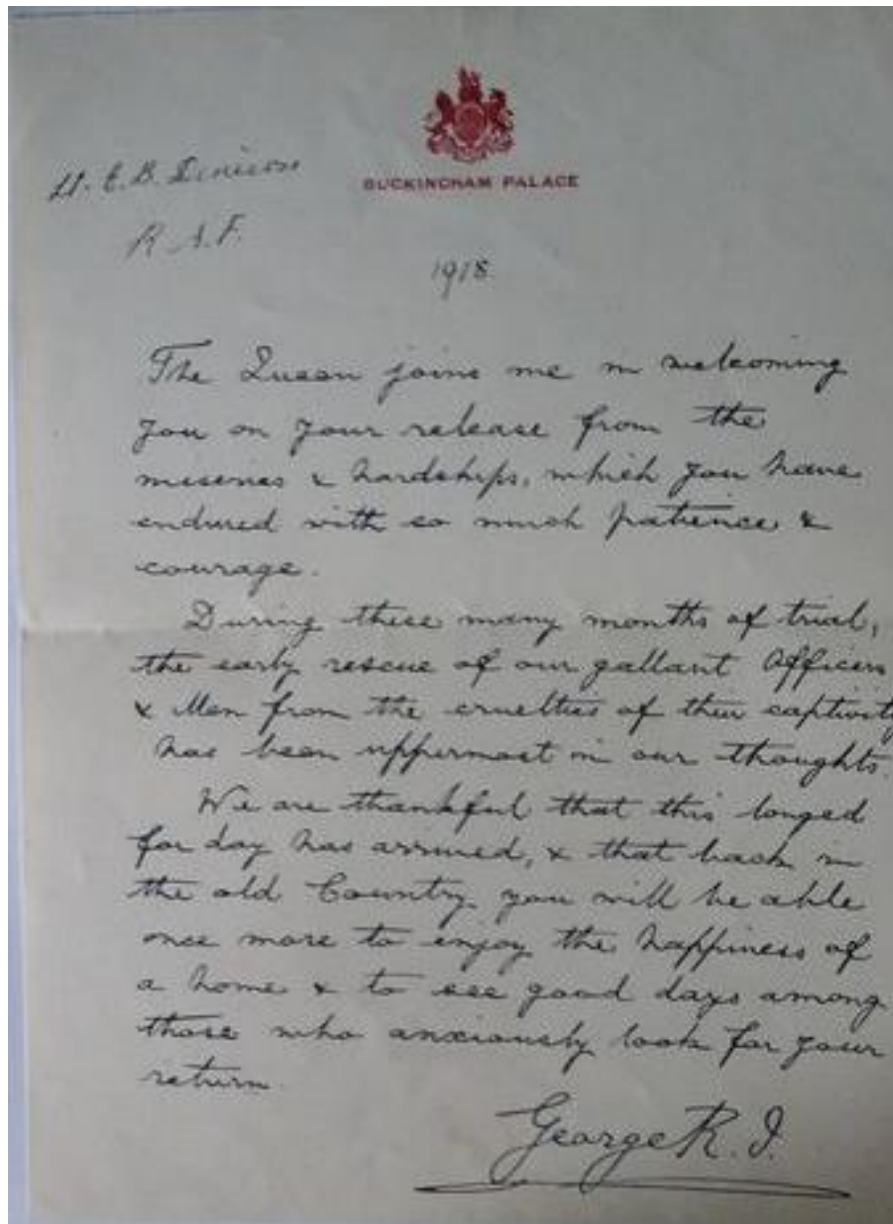 BUCKINGHAM PALACE
Lt. E. B. Denison
R.A.F.
1918
The Queen joins me in welcoming
you on your release from the
miseries & hardships, which you have
endured with so much patience &
courage.
During these many months of trial,
the early rescue of our gallant Officers
& Men from the cruelties of their captivity
has been uppermost in our thoughts
We are thankful that this longed
for day has arrived, & that back in
the old Country you will be able
once more to enjoy the happiness of
a home & to see good days among
those who anxiously look for your
return.
George R.I.